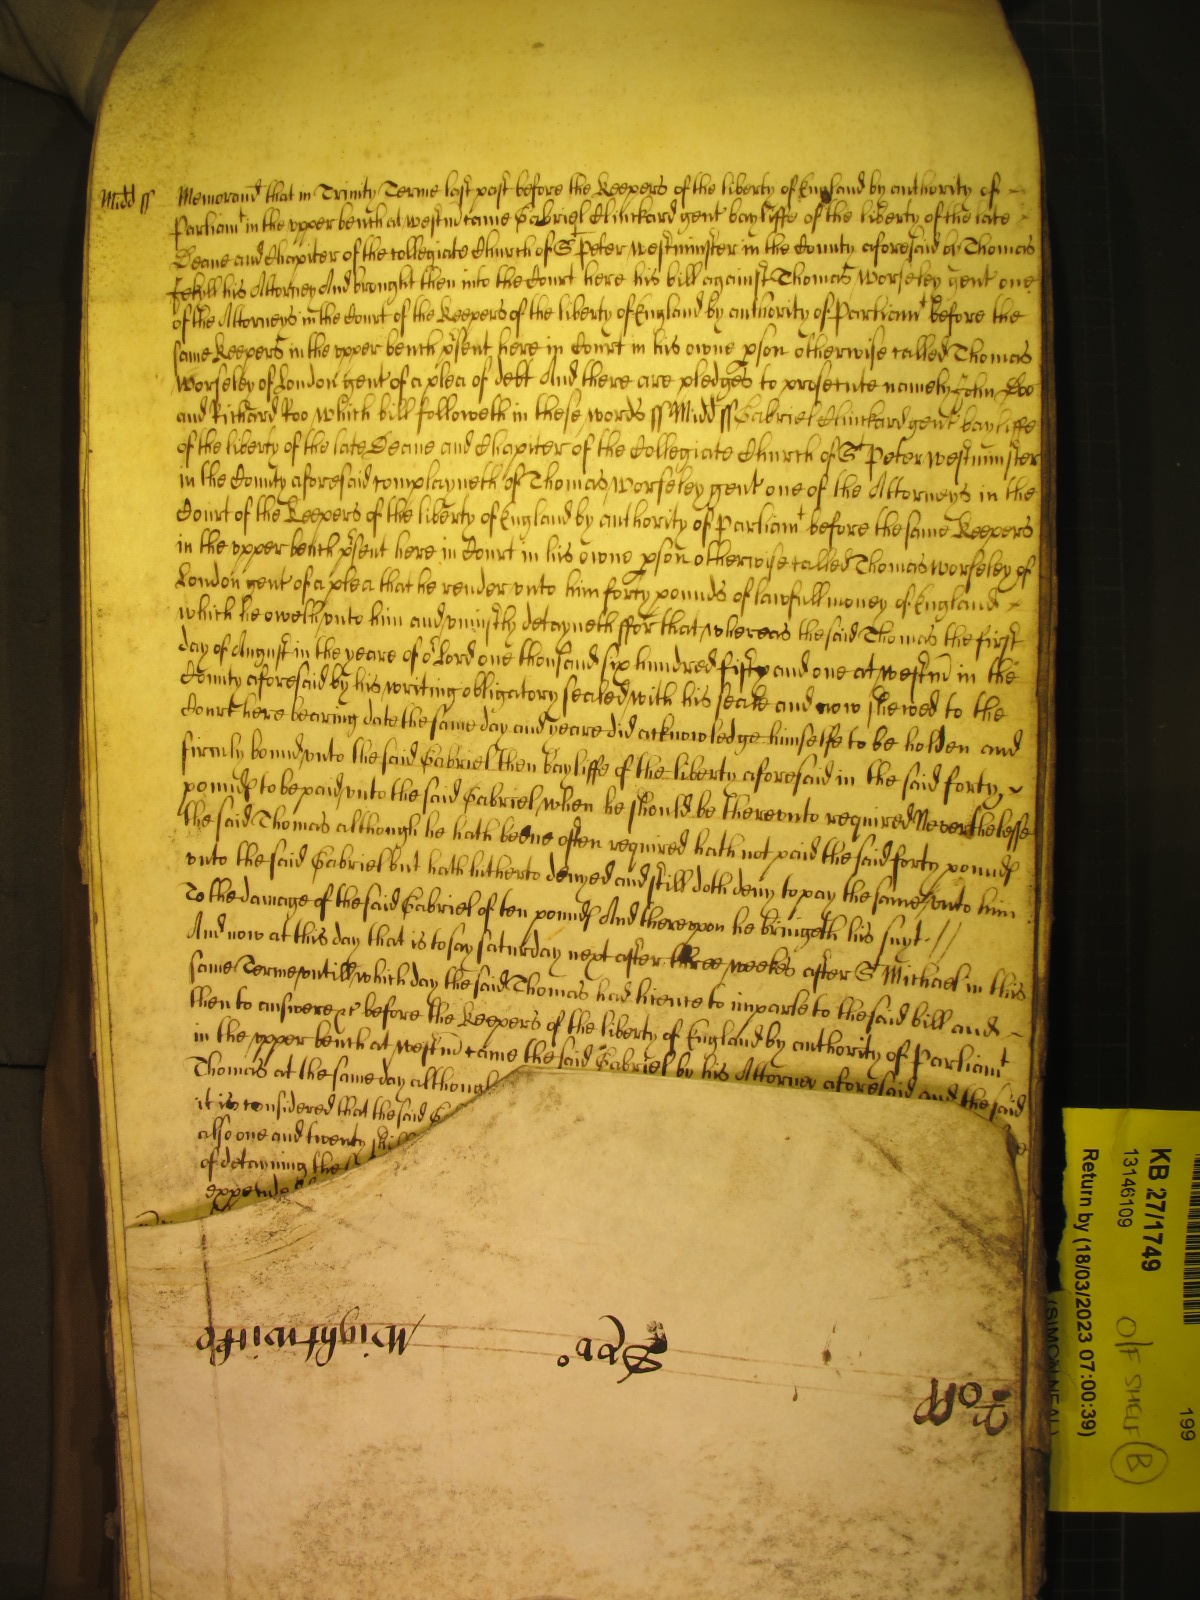 Midd ss Memorand that in Trinity Terme last past before the Keepers of the liberty of England by authority of
Parliamt in the upper bench at westm came Gabriel Clinckard gent bayliffe of the liberty of the late
Deane and Chapiter of the Collegiate Church of St Peter westminster in the County aforesaid by Thomas
Jekyll his Attorney And brought then into the Court here his bill against Thomas Worseley gent one
of the Attorneys in the Court of the Keepers of the liberty of England by authority of Parliamt before the
same Keepers in the upper bench psent here in Court in his owne pson otherwise called Thomas
Worseley of London gent of a plea of debt And there are pledges to prosecute namely John Doo
and Richard Roo which bill followeth in these words ss Midd ss Gabriel Clinckard gent bayliffe
of the liberty of the late Deane and Chapiter of the Collegiate Church of St Peter westminster
in the County aforesaid complayneth of Thomas Worseley gent one of the Attorneys in the
Court of the Keepers of the liberty of England by authority of Parliamt before the same Keepers
in the upper bench psent here in Court in his owne pson otherwise called Thomas Worseley of
London gent of a plea that he render unto him forty pounds of lawfull money of England
which he oweth unto him and uniustly detayneth ffor that whereas the said Thomas the first
day of August in the yeare of or Lord one thousand six hundred fifty and one at westm in the
County aforesaid by his writing obligatory sealed with his seale and now shewed to the
Court here bearing date the same day and yeare did acknowledge himselfe to be holden and
firmly bound unto the said Gabriel then bayliffe of the liberty aforesaid in the said forty
pounds to be paid unto the said Gabriel when he should be thereunto required Neverthelesse
the said Thomas although he hath beene often required hath not paid the said forty pounds
unto the said Gabriel but hath hitherto denyed and still doth deny to pay the same unto him
To the damage of the said Gabriel of ten pounds And thereupon he bringeth his suyt //
And now at this day that is to say saturday next after three weekes after St Michael in this
same Terme untill which day the said Thomas had licence to imparle to the said bill and
then to answere &c before the Keepers of the liberty of England by authority of Parliamt
in the upper bench at westm came the said Gabriel by his Attorney aforesaid and the said
Thomas at the same day although
it is considered that the said G
also one and twenty shill
of detayning the s
expende
Wightwicke
KB 27/1749
13146109
Return by (18/03/2023 07:00:39)
(SIMON NEAL)
199
O/F SHELF B